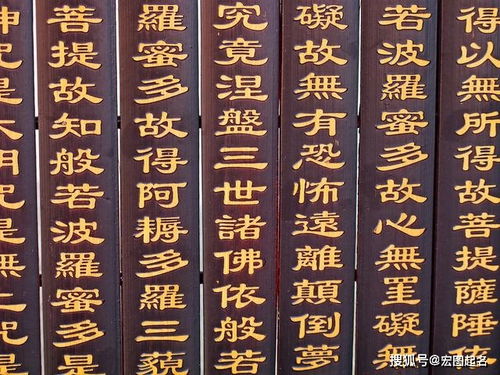 得以無所得故菩提薩陲依
若波羅蜜多故心無罣礙無
礙故無有恐怖遠離顛倒夢
究竟涅盤三世諸佛依般若
羅蜜多故得阿耨多羅三藐
菩提故知般若波羅蜜多是
神咒是大明咒是無上咒是
搜狐号@宏图起名